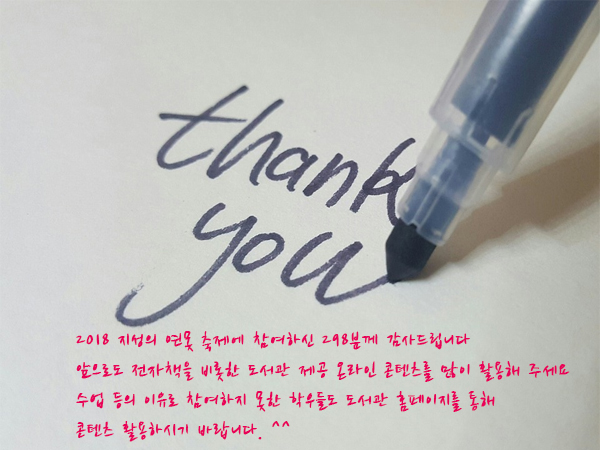 thank
you
2018 지성의 연못 축제에 참여하신 298분께 감사드립니다
앞으로도 전자책을 비롯한 도서관 제공 온라인 콘텐츠를 많이 활용해 주세요
수업 등의 이유로 참여하지 못한 학우들도 도서관 홈페이지를 통해
콘텐츠 활용하시기 바랍니다. ^^